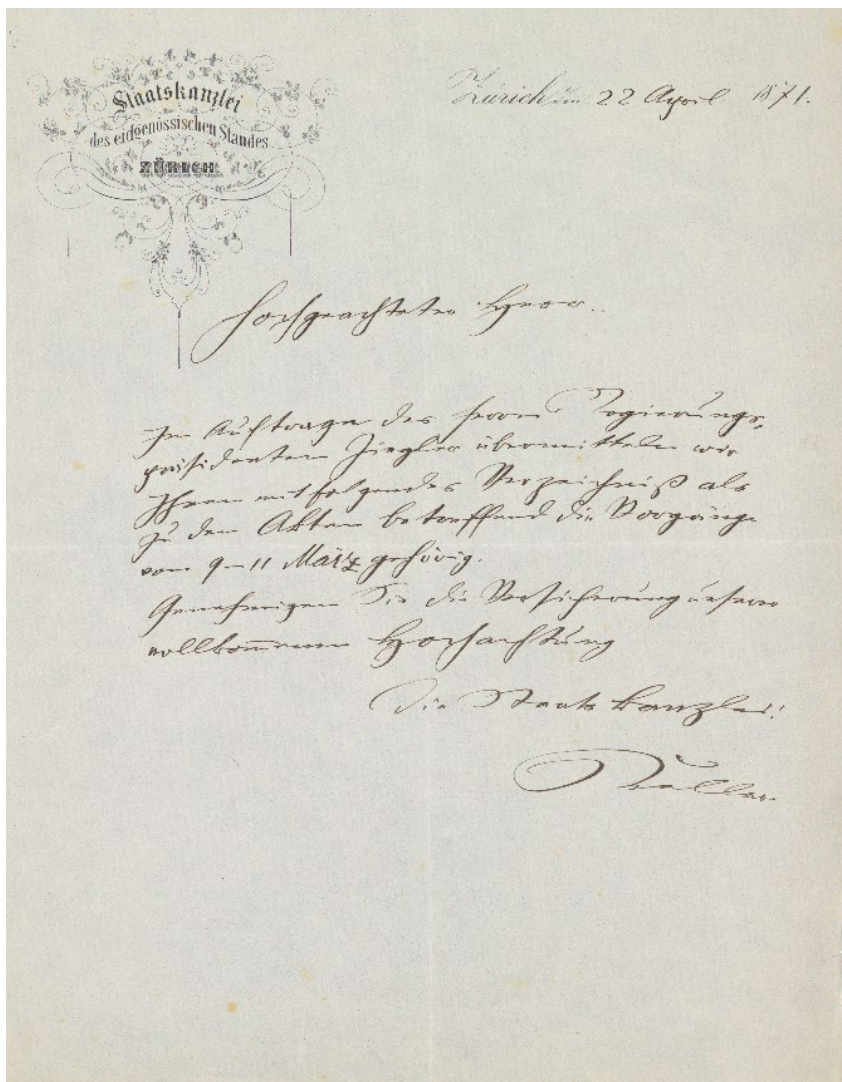 Staatskanzlei
des eidgenössischen Standes
ZÜRICH.
Zürich den 22 April 1871.
Hochgeachteter Herr.
Im Auftrage des Herrn Regierungs-
präsidenten Ziegler übermitteln wir
Ihnen mitfolgendes Verzeichniß als
zu den Akten betreffend die Vorgänge
vom 9–11 März gehörig.
Genehmigen Sie die Versicherung unserer
vollkommenen Hochachtung
Die Staatskanzlei: